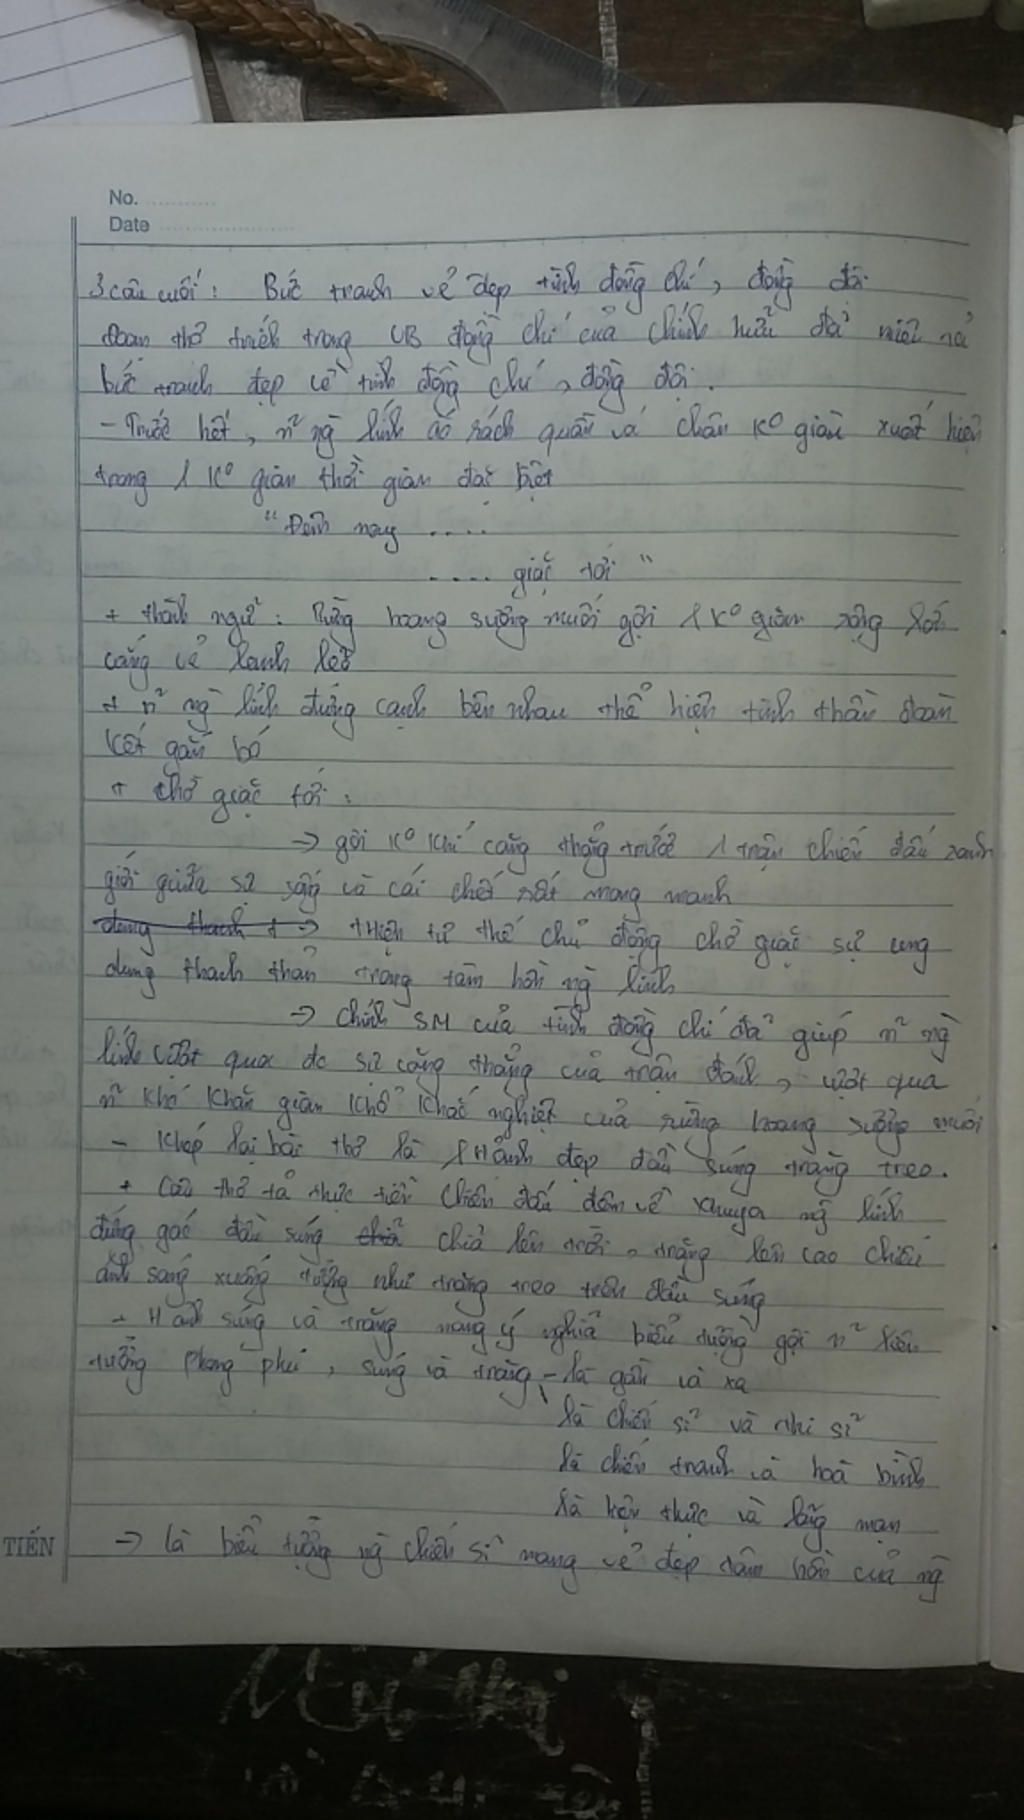 No.
Date
3 câu cuối: Bức tranh vẻ đẹp tình đồng chí, đồng đội.
Đoạn thơ trích trong VB đồng chí của Chính Hữu đã
bức tranh đẹp về tình đồng chí, đồng đội.
- Trước hết, n² ng lính áo rách quần vá chân K° giày xuất hiện
trong 1 K° gian thời gian đặc biệt
"Đêm nay ....
.... giặc tới"
+ thành ngữ: Rừng hoang sương muối gợi 1 K° gian rộng lớn
vẻ lạnh lẽo
+ n² ng lính đứng cạnh bên nhau thể hiện tinh thần đoàn
kết gắn bó
+ chờ giặc tới:
-> gợi K° khí căng thẳng trước 1 trận chiến đấu ranh
giới giữa sự sống và cái chết rất mong manh
-> tHiện tư thế chủ động chờ giặc sự ung
dung thanh thản trong tâm hồn ng lính
-> chính SM của tình đồng chí đã giúp n² ng
lính vượt qua đc sự căng thẳng của trận đánh, vượt qua
n² khó khăn gian khổ khắc nghiệt của rừng hoang sương muối
- Khép lại bài thơ là 1 HẢnh đẹp đầu súng trăng treo.
+ Câu thơ tả thực tiễn chiến đấu đêm về khuya ng lính
đứng gác đầu súng chĩa lên trời, trăng lên cao chiếu
ánh sáng xuống tưởng như trăng treo trên đầu súng
+ HẢnh súng và trăng mang ý nghĩa biểu tượng gợi n² liên
tưởng phong phú, súng và trăng - là gần và xa
là chiến sĩ và thi sĩ
là chiến tranh và hoà bình
là hiện thực và lãng mạn
TIẾN -> là biểu tượng ng chiến sĩ mang vẻ đẹp tâm hồn của ng